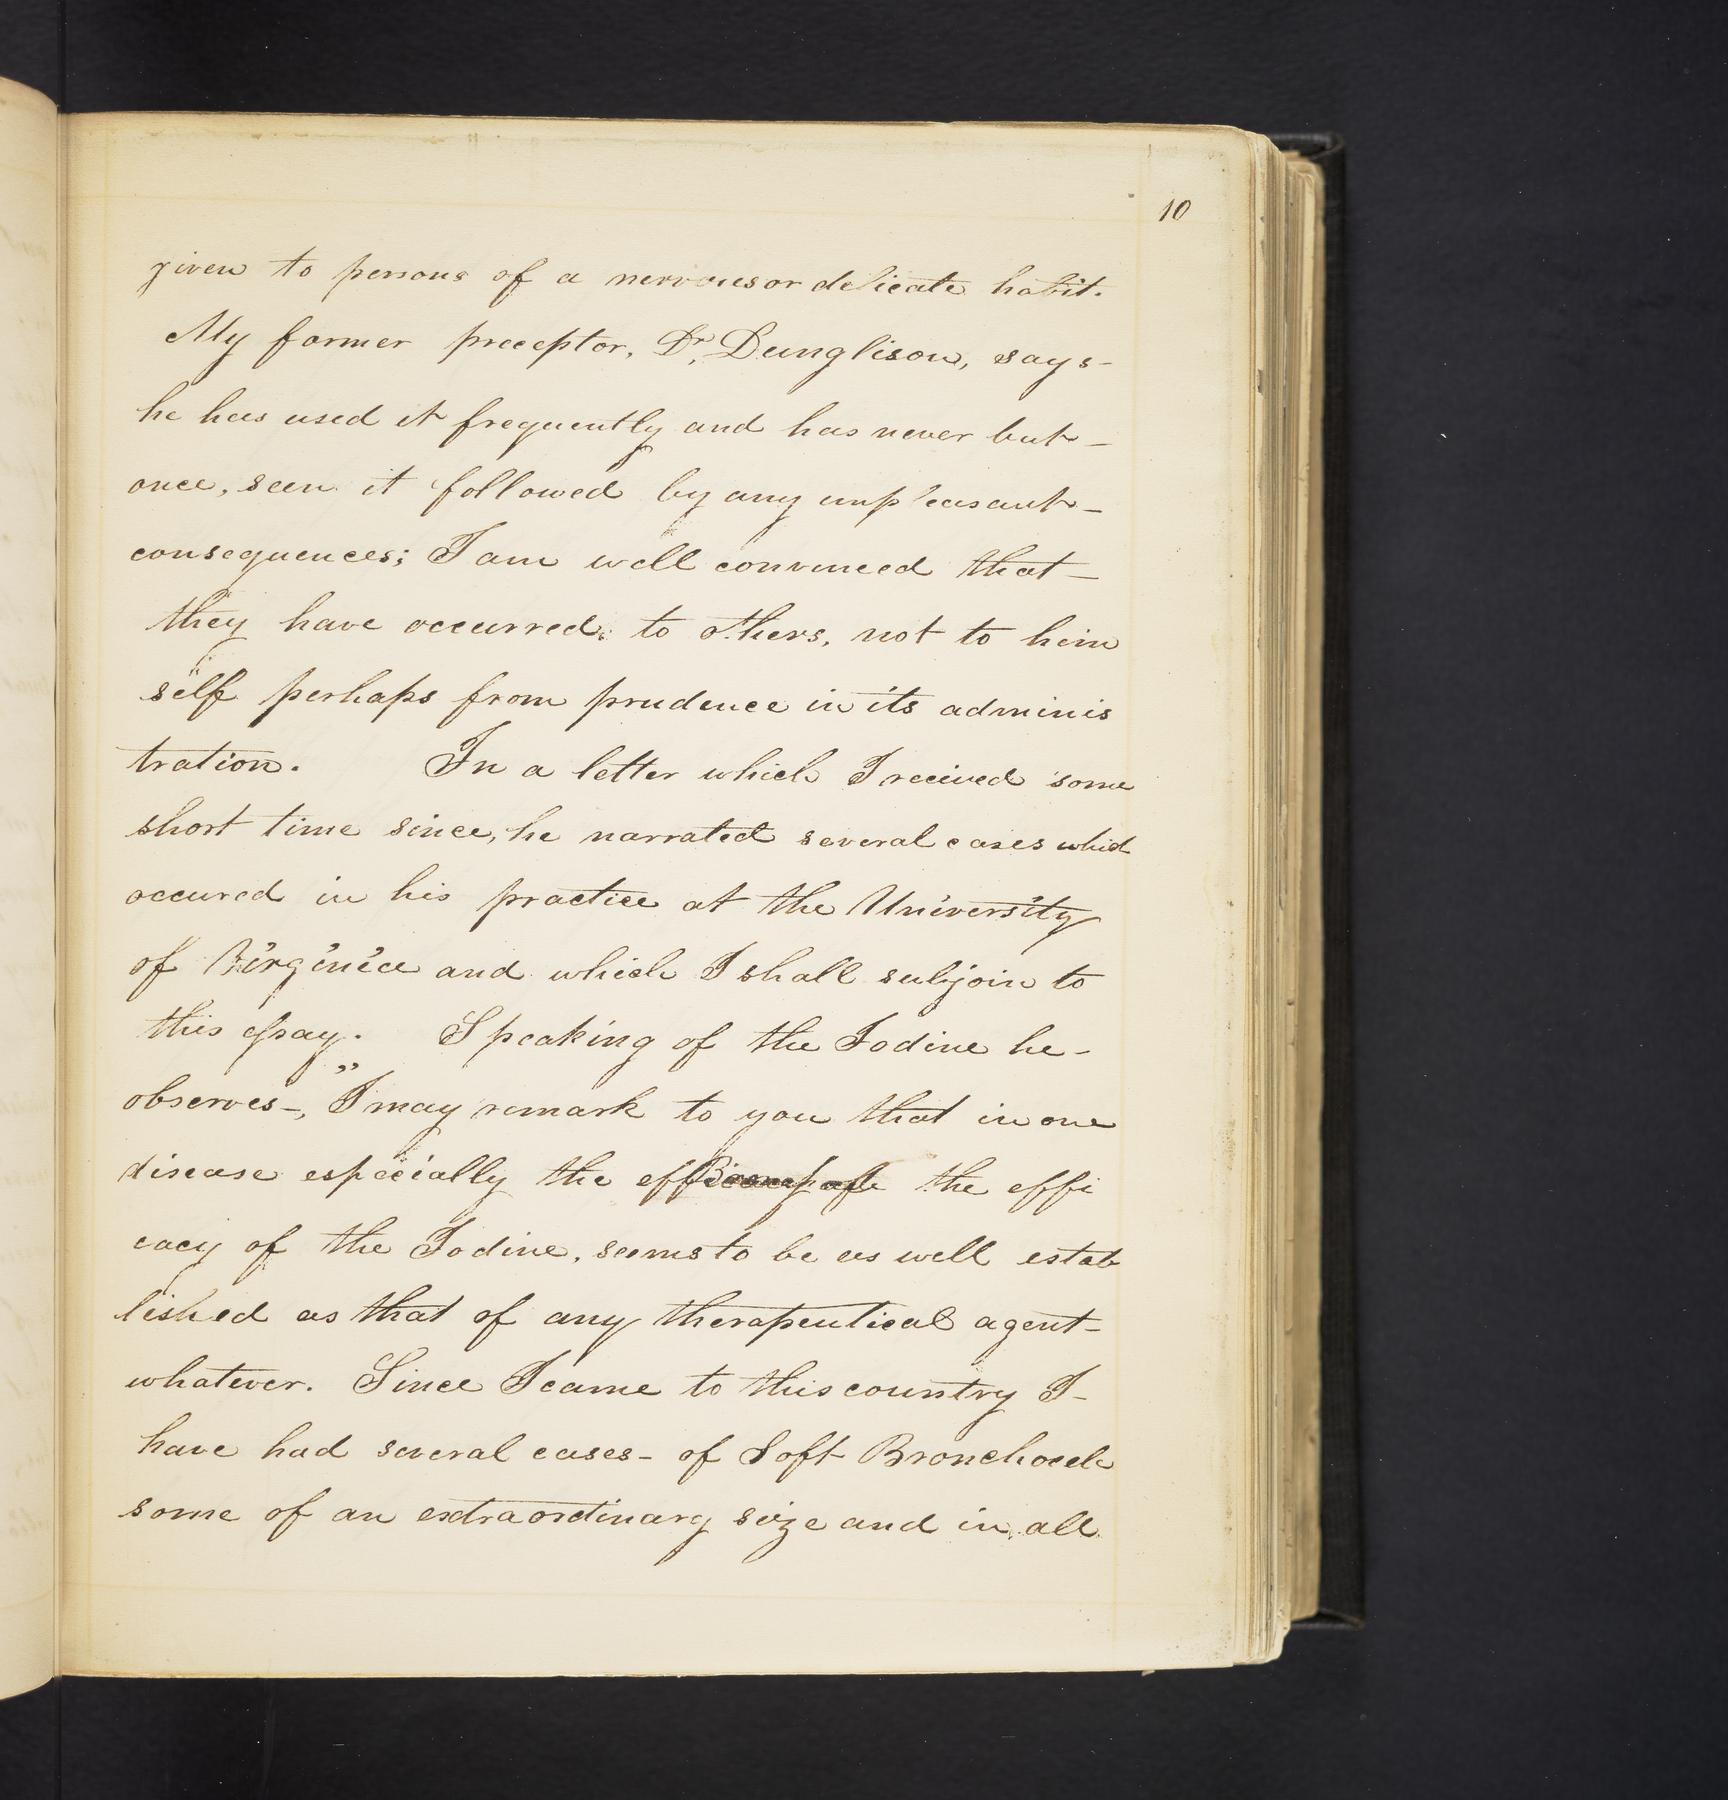 10
given to persons of a nervous or delicate habit.
My former preceptor, Dr. Dunglison, says-
he has used it frequently and has never but-
once, seen it followed by any unpleasant-
consequences; I am well convinced that-
they have occurred. to others, not to him
self perhaps from prudence in its adminis
tration. In a letter which I recived some
short time since, he narrated several cases which
occured in his practice at the University
of Virginia and which I shall subjoin to
this essay. Speaking of the Iodine he-
observes-, "I may remark to you that in one
disease especially the the effi
cacy of the Iodine, seems to be as well estab
lished as that of any therapeutical agent-
whatever. Since I came to this country I-
have had several cases- of Soft Bronchocele
some of an extraordinary size and in all